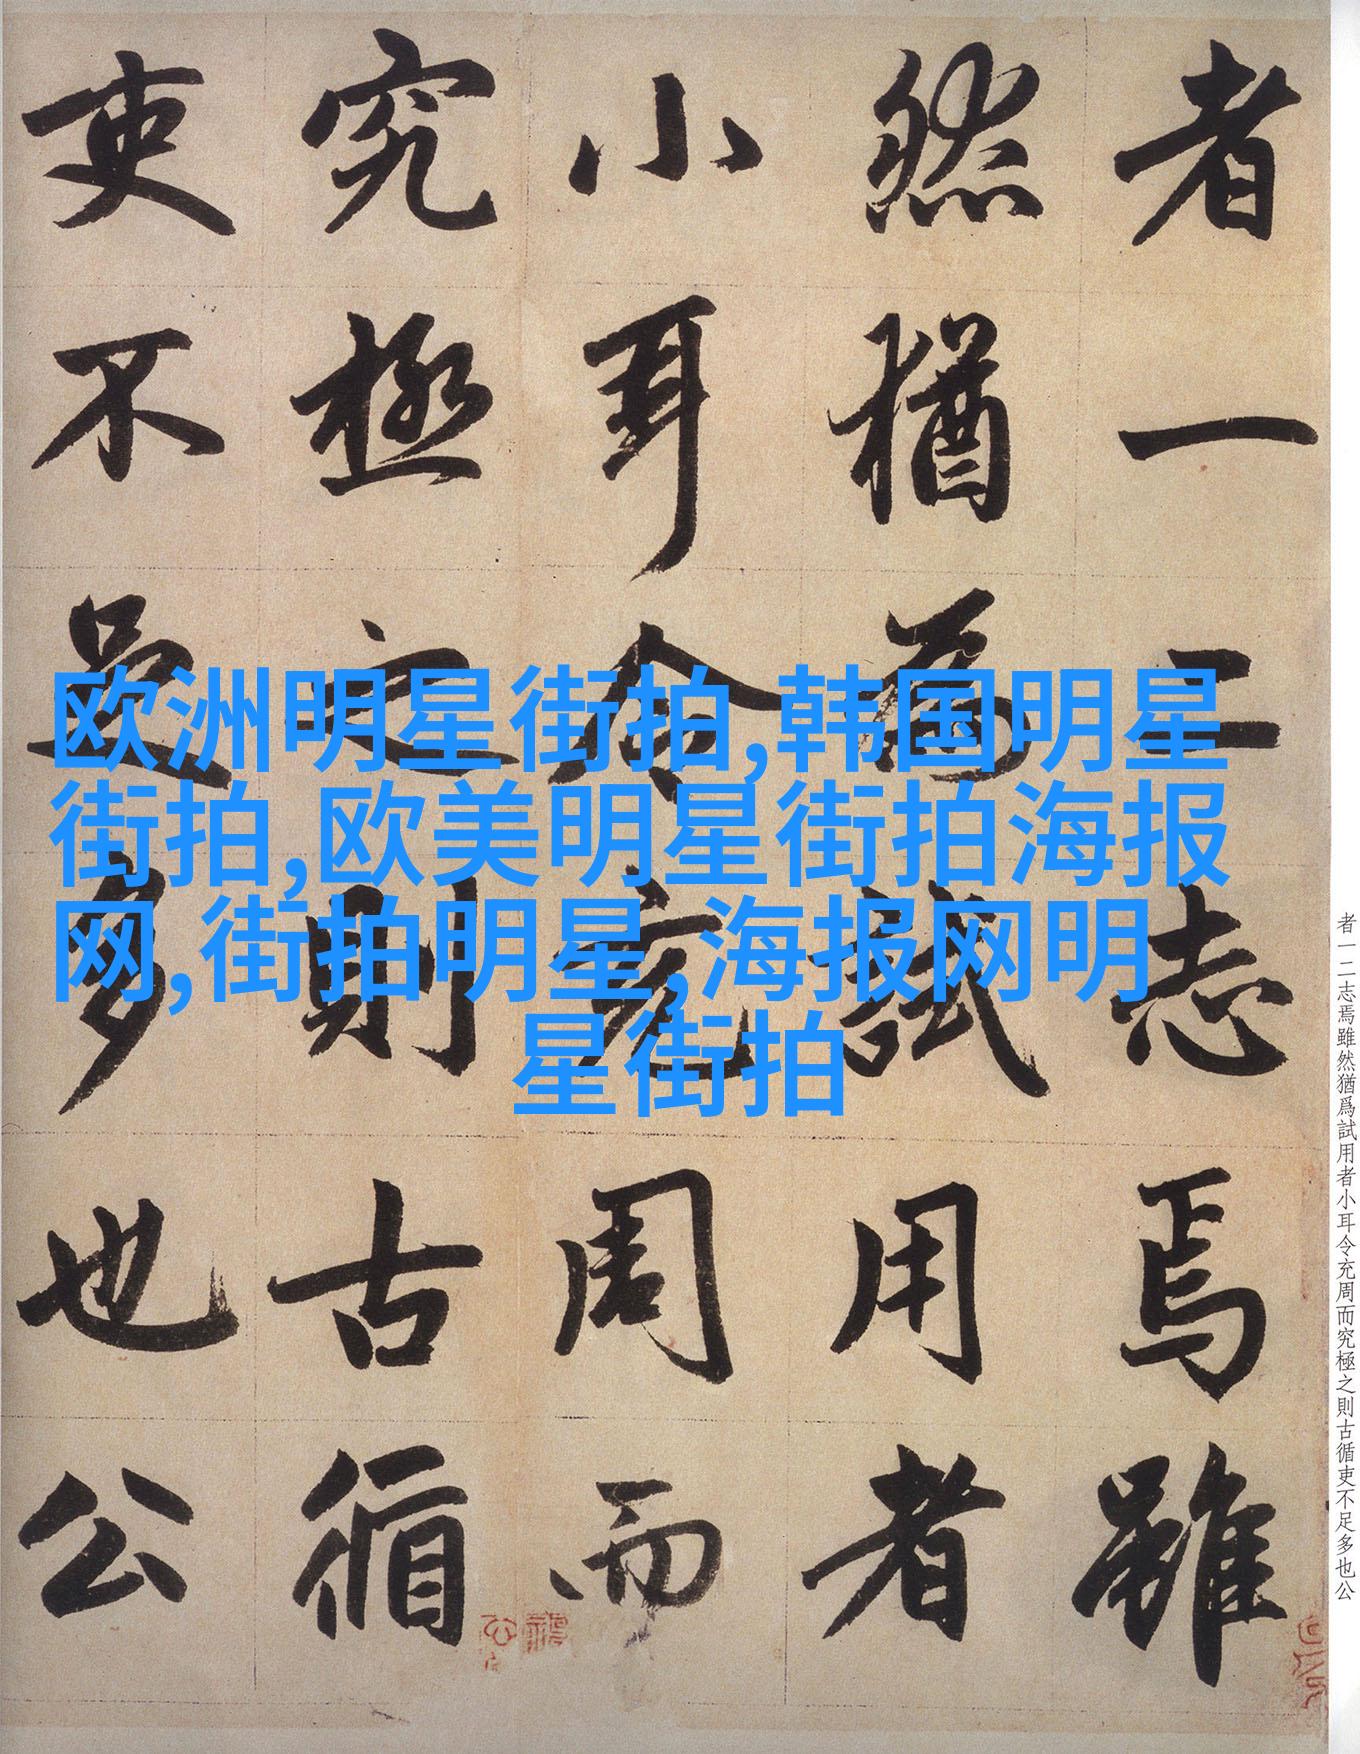 欧洲明星街拍,韩国明星
街拍,欧美明星街拍海报
网,街拍明星,海报网明
星街拍
者一二志焉雖然猶爲試用者小耳令充周而究極之則古循吏不足多也公
者一二志焉雖
然猶為試用者
小耳令充周而
究極之則古循
吏不足多也公